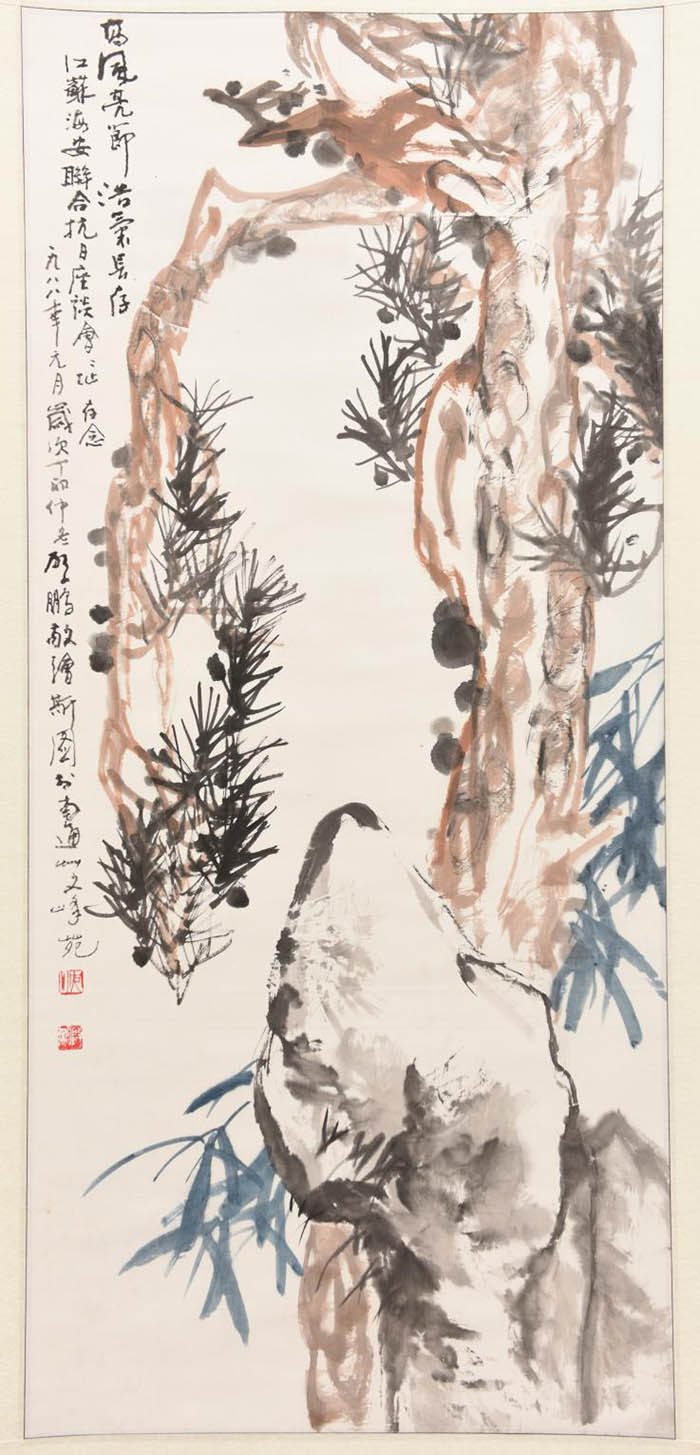 高风亮節浩氣長存
江蘇海安聯合抗日座談會址存念
一九八八年元月歲次丁卯仲冬顧鹏敬繪斯圖於南通文峰苑